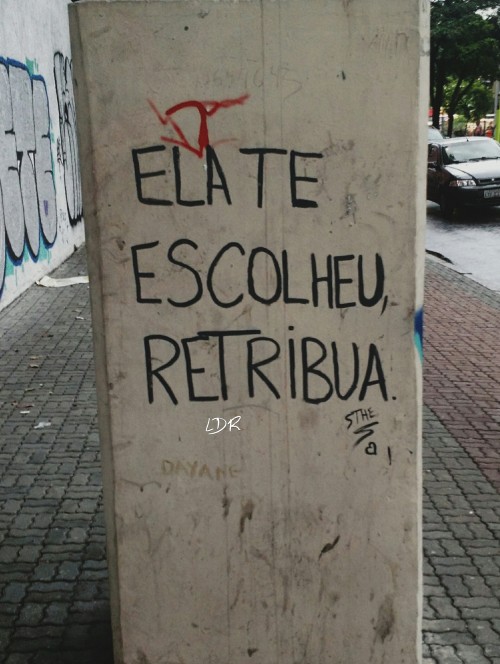 ELA TE
ESCOLHEU,
RETRIBUA.
LDR
STHE
DAYANE